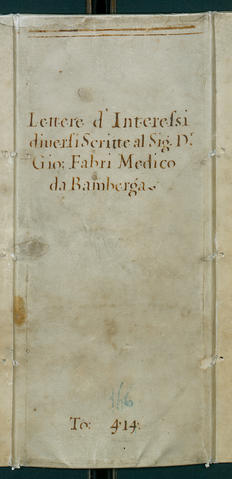 Lettere d'Interessi
diversi Scritte al Sig. Dr.
Gio: Fabri Medico
da Bamberga
166
To: 414.